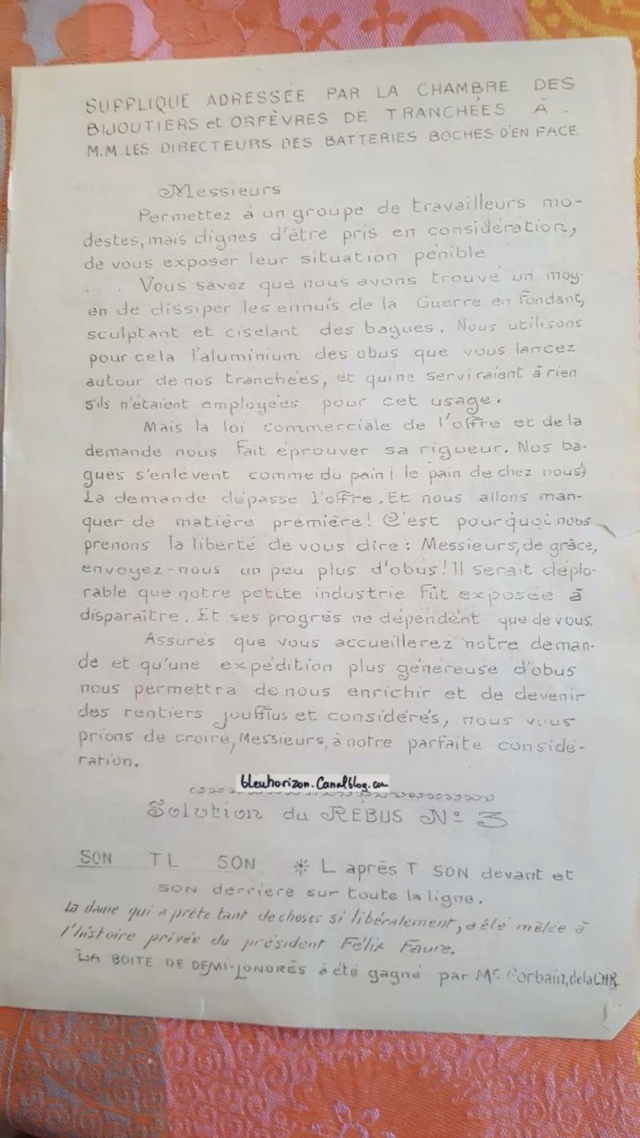 SUPPLIQUE ADRESSÉE PAR LA CHAMBRE DES
BIJOUTIERS et ORFÈVRES DE TRANCHÉES À
M.M. LES DIRECTEURS DES BATTERIES BOCHES D'EN FACE.
Messieurs
Permettez à un groupe de travailleurs mo-
destes, mais dignes d'être pris en considération,
de vous exposer leur situation pénible
Vous savez que nous avons trouvé un moy-
en de dissiper les ennuis de la Guerre en fondant,
sculptant et ciselant des bagues. Nous utilisons
pour cela l'aluminium des obus que vous lancez
autour de nos tranchées, et qui ne serviraient à rien
s'ils n'étaient employées pour cet usage.
Mais la loi commerciale de l'offre et de la
demande nous fait éprouver sa rigueur. Nos ba-
gues s'enlèvent comme du pain (le pain de chez nous)
La demande dépasse l'offre. Et nous allons man-
quer de matière première! C'est pourquoi nous
prenons la liberté de vous dire: Messieurs, de grâce,
envoyez-nous un peu plus d'obus! Il serait déplo-
rable que notre petite industrie fût exposée à
disparaître. Et ses progrès ne dépendent que de vous.
Assurés que vous accueillerez notre deman-
de et qu'une expédition plus généreuse d'obus
nous permettra de nous enrichir et de devenir
des rentiers joufflus et considérés, nous vous
prions de croire, Messieurs, à notre parfaite considé-
ration.
bleuhorizon.Canalblog.com
Solution du RÉBUS No 3
SON TL SON * L après T SON devant et
SON derrière sur toute la ligne.
La dame qui a prêté tant de choses si libéralement, a été mêlée à
l'histoire privée du président Félix Faure.
LA BOITE DE DEMI-LONDRÈS a été gagné par Mr Corbain, de la CHR.